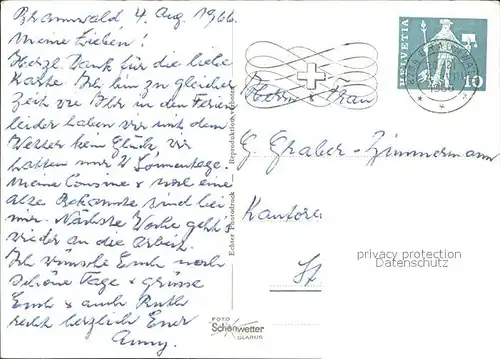 Braunwald 4. Aug. 1966
Meine Lieben!
Herzl. Dank für die liebe
Karte. Ich bin zu gleicher
Zeit wie Ihr in den Ferien
leider haben wir mit dem
Wetter kein Glück, wir
hatten nur 2 Sonnentage.
Meine Cousine & noch eine
alte Bekannte sind bei
mir. Nächste Woche geht's
wieder an die Arbeit.
Ich wünsche Euch noch
schöne Tage & grüsse
Euch & auch Ruth
recht herzlich Euer
Echter Photodruck — Reproduktion verboten
FOTO
Schönwetter
GLARUS
HELVETIA
10
Herr & Frau
G. Graber-Zimmermann
St
privacy protection
watermark